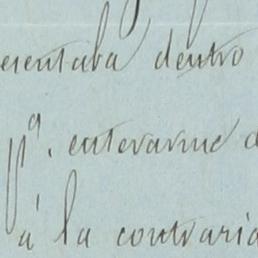 esentaba dentro
pª. enterarme d
á la contraria